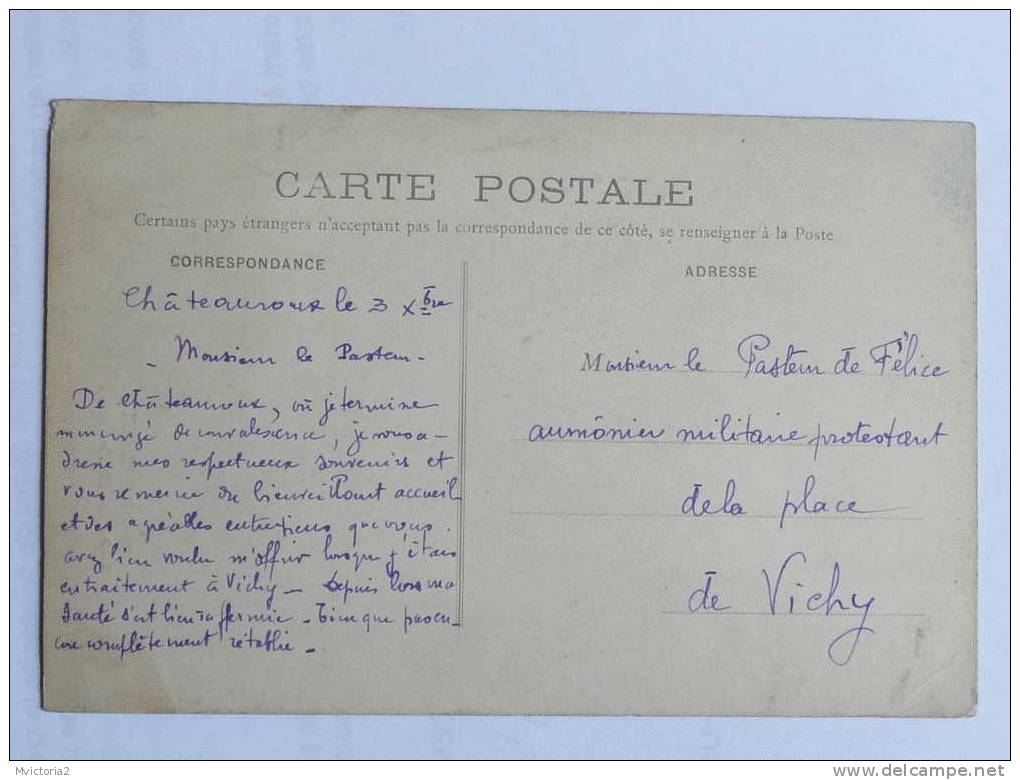 CARTE POSTALE
Certains pays étrangers n'acceptant pas la correspondance de ce côté, se renseigner à la Poste
CORRESPONDANCE
Châteauroux le 3 Xbre
- Monsieur le Pasteur -
De Châteauroux, où je termine
mon congé de convalescence, je vous a-
dresse mes respectueux souvenirs et
vous remercie du bienveillant accueil
et des agréables entretiens que vous
avez bien voulu m'offrir lorsque j'étais
en traitement à Vichy - Depuis lors ma
santé s'est bien raffermie - bien que pas en-
core complètement rétablie -
ADRESSE
Monsieur le Pasteur de Félice
aumônier militaire protestant
de la place
de Vichy
Mvictoria2
delcampe.net